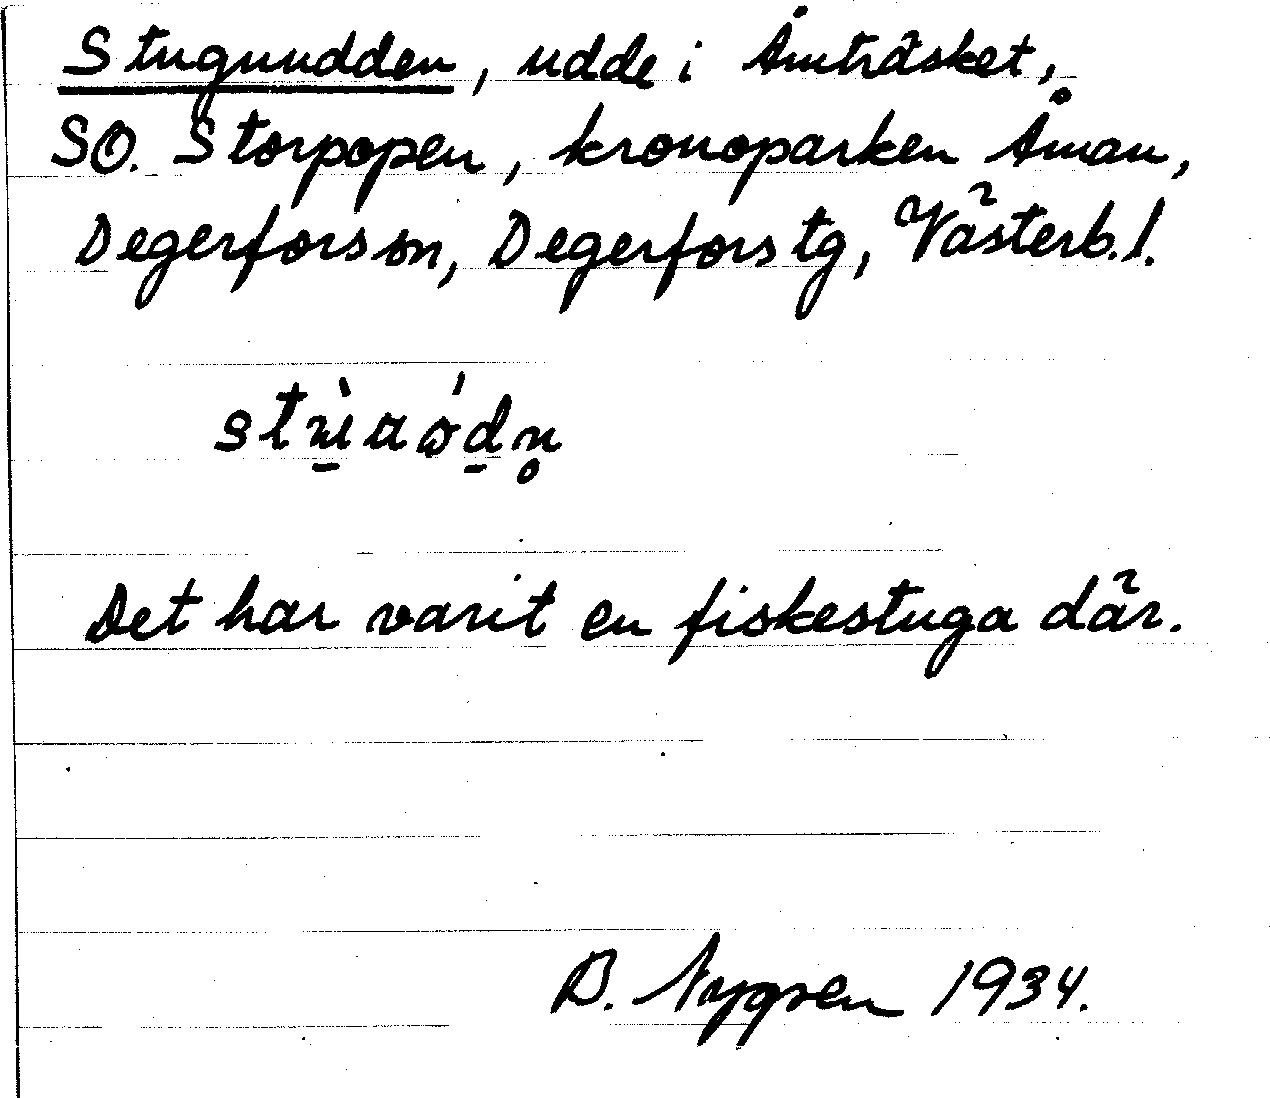 Stuguudden, udde i Åmträsket,
SO. Storpopen, kronoparken Åman,
Degerfors sn, Degerfors tg, Västerb. l.
Det har varit en fiskestuga där.
B. Nygren 1934.